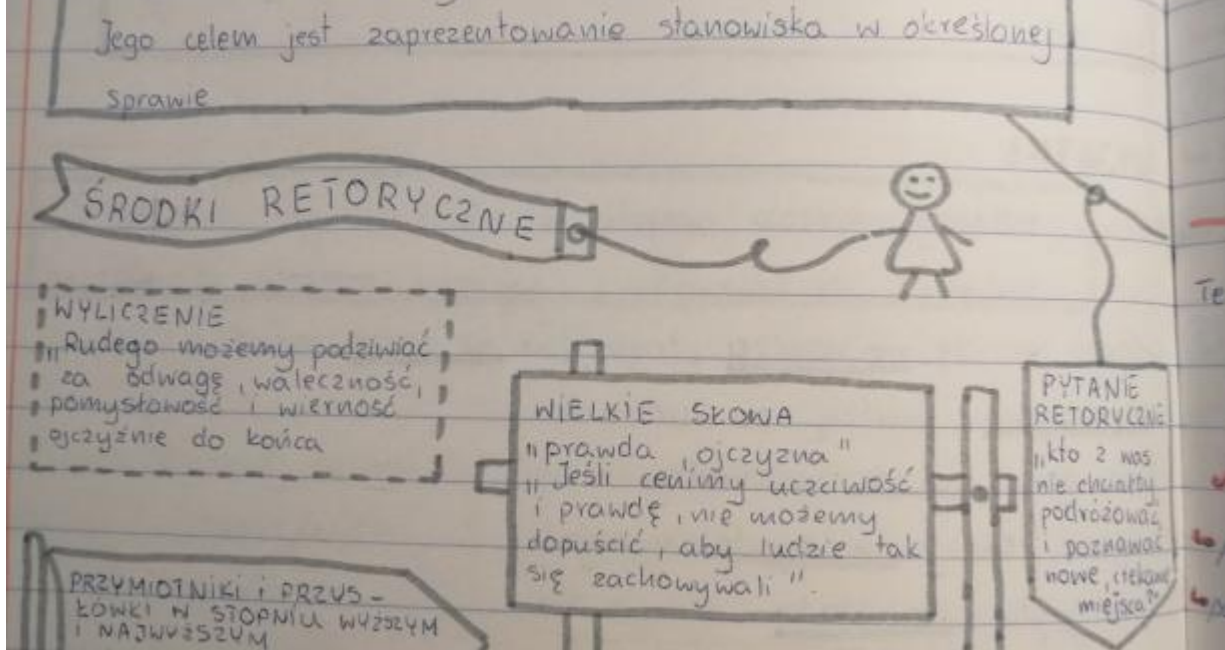 Jego celem jest zaprezentowanie stanowiska w określonej
sprawie
ŚRODKI RETORYCZNE
WYLICZENIE
„Rudego możemy podziwiać
za odwagę, waleczność,
pomysłowość i wierność
ojczyźnie do końca
WIELKIE SŁOWA
„prawda, ojczyzna"
„Jeśli cenimy uczciwość
i prawdę, nie możemy
dopuścić, aby ludzie tak
się zachowywali".
PYTANIE
RETORYCZNE
„kto z nas
nie chciałby
podróżować
i poznawać
nowe, ciekawe
miejsca?"
PRZYMIOTNIKI i PRZYS-
ŁÓWKI W STOPNIU WYŻSZYM
I NAJWYŻSZYM
Te